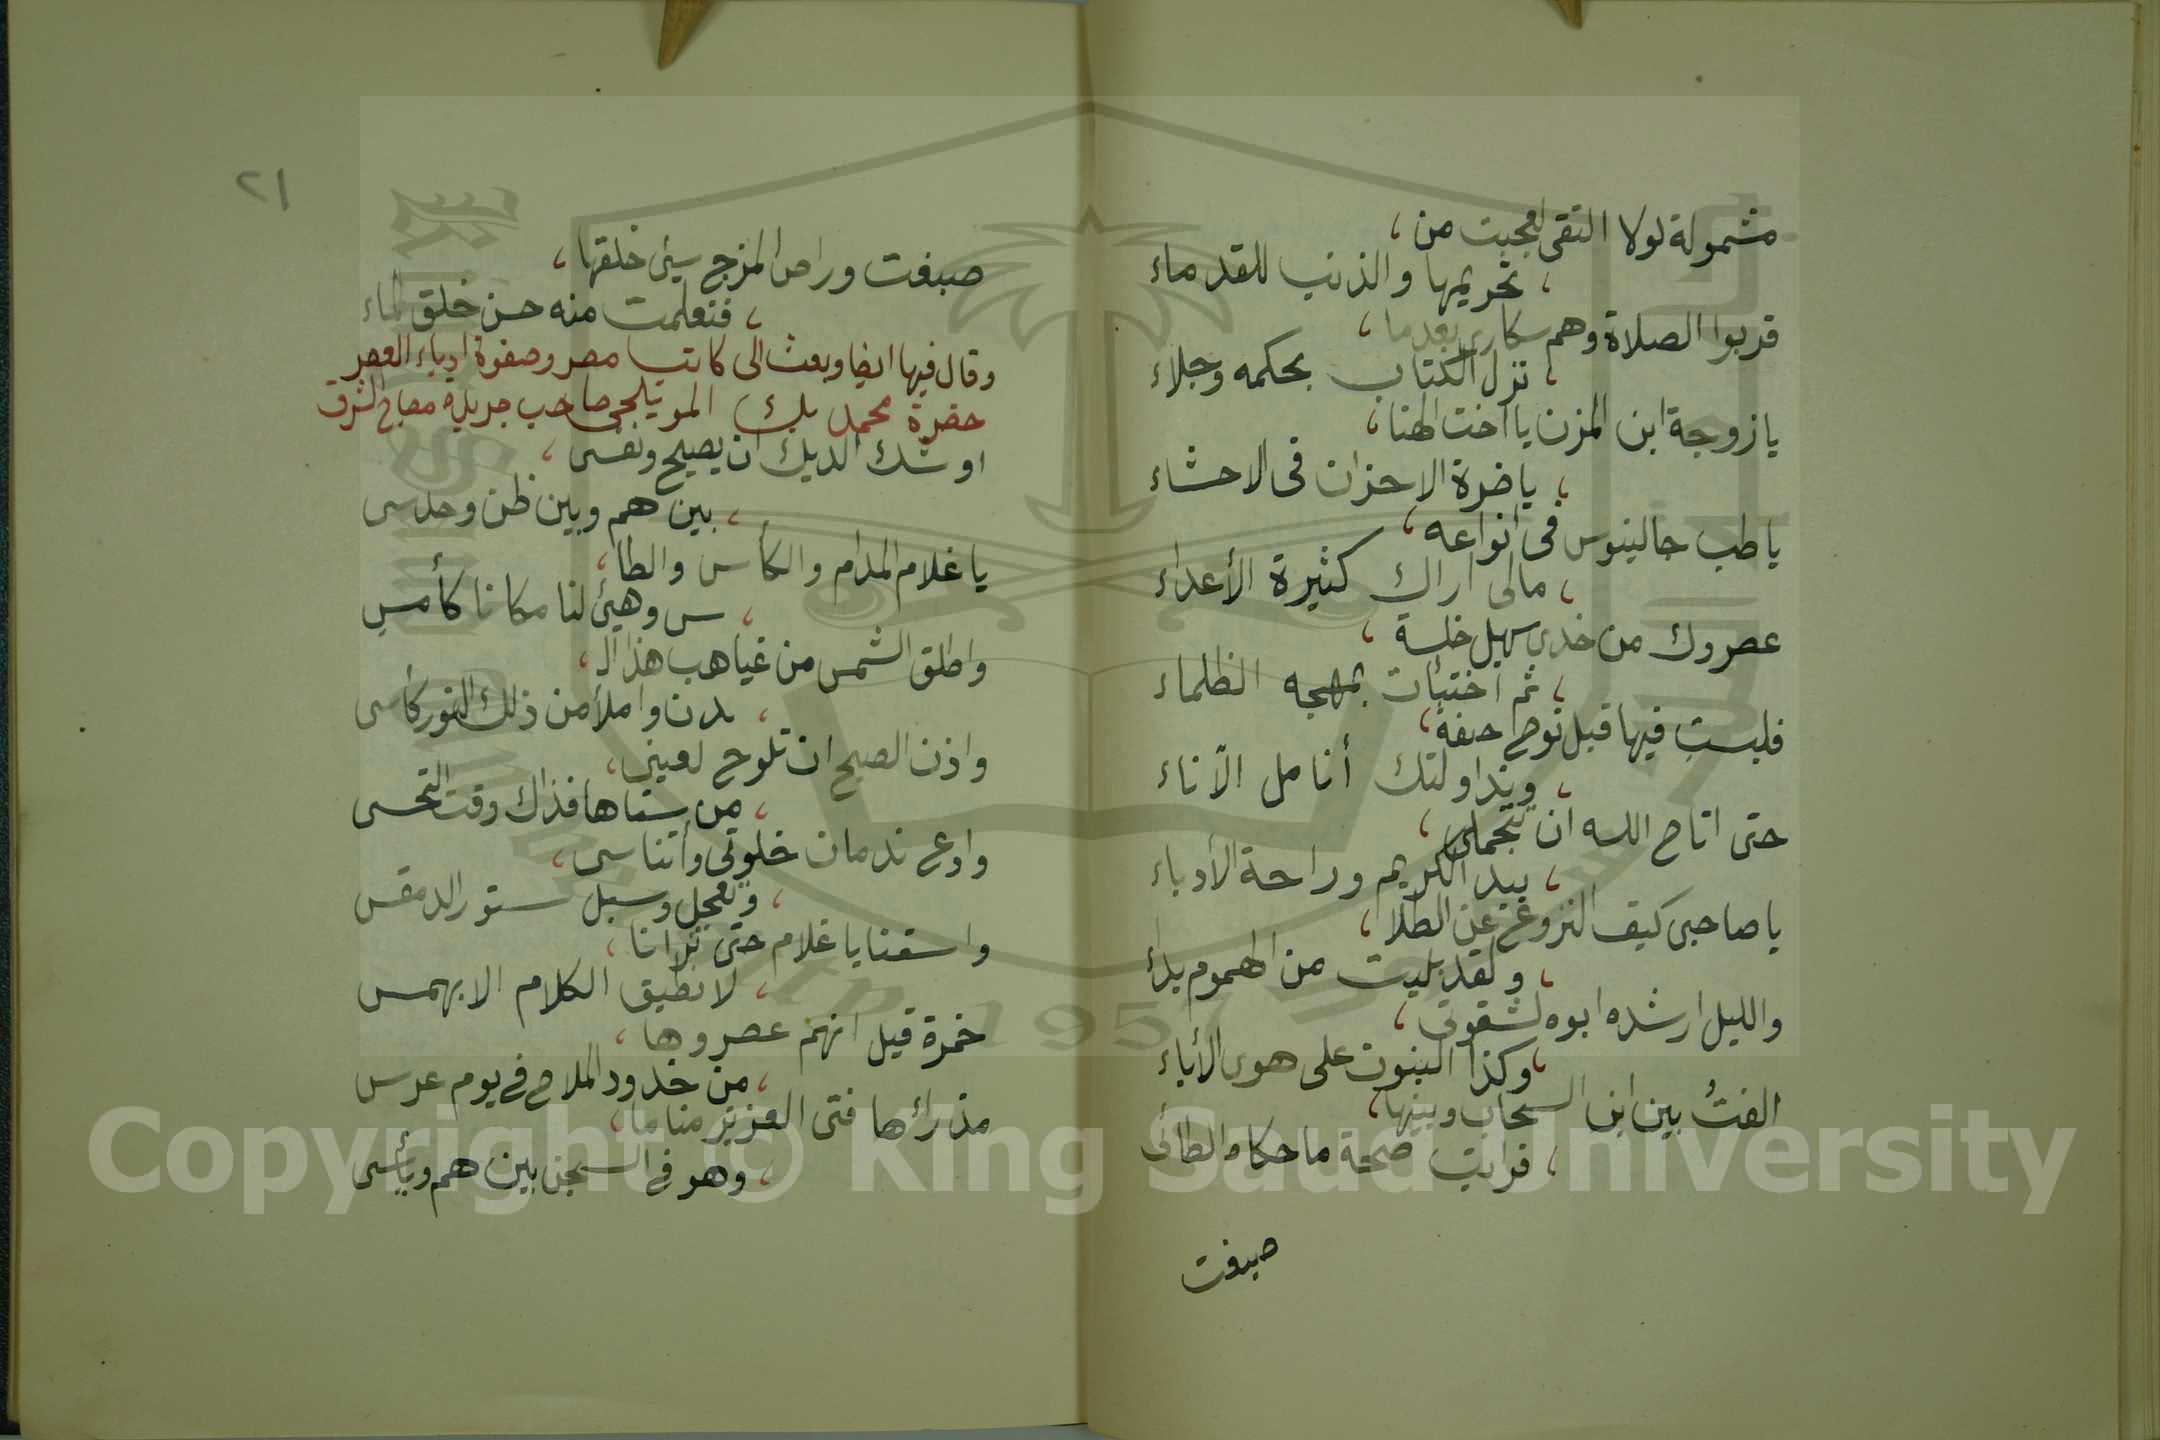 مشمولة لولا التقى لعجبت من ،
، تحريمها والذنب للقدماء
قربوا الصلاة وهم سكارى بعدما ،
، نزل الكتاب بحكمه وجلاء
يا زوجة ابن المزن يا اخت الهنا ،
، يا ضرة الاحزان فى الاحشاء
يا طب جالينوس فى انواعه ،
، مالى اراك كثيرة الأعداء
عصروك من خدى سهيل خلسة ،
، ثم اختبأت بمهجه الظلماء
فلبست فيها قبل نوح حقبة ،
، وتداولتك أنامل الآناء
حتى اتاح الله ان تتجملى ،
، بيد الكريم وراحة الأدباء
يا صاحبى كيف النزوع عن الطلا ،
، ولقد بليت من الهموم بداء
والليل ارشده ابوه لشقوتى ،
، وكذا البنون على هوى الأباء
الفتُ بين ابن السحاب وبينها ،
، فرايت صحة ما حكاه الطائى
صبغت
٢١
صبغت وراض المزج سيئ خلقها ،
، فتعلمت منه حسن خلق الماء
وقال فيها ايضا وبعث الى كاتب مصر وصفوة ادباء العصر
حضرة محمد بك المويلحى صاحب جريدة مصباح الشرق
اوشك الديك ان يصيح ونفسى ،
، بين هم وبين ظن وحدسى
يا غلام المدام والكأس والطا ،
، س وهيئ لنا مكانا كأمس
واطلق الشمس من غياهب هذا الـ ،
، ـدن واملأ من ذلك النور كأسى
واذن الصبح ان تلوح لعينى ،
، من سناها فذاك وقت التحسى
وادع ندمان خلوتى وأتناسى ،
، وتعجل وسبل ستور الدمقس
واسقنا يا غلام حتى ترانا ،
، لا نطيق الكلام الا بهمس
خمرة قيل انهم عصروها ،
، من خدود الملاح فى يوم عرس
مذ رائها فتى العزيز مناما ،
، وهو فى السجن بين هم ويأسى
1957
Copyright © King Saud University